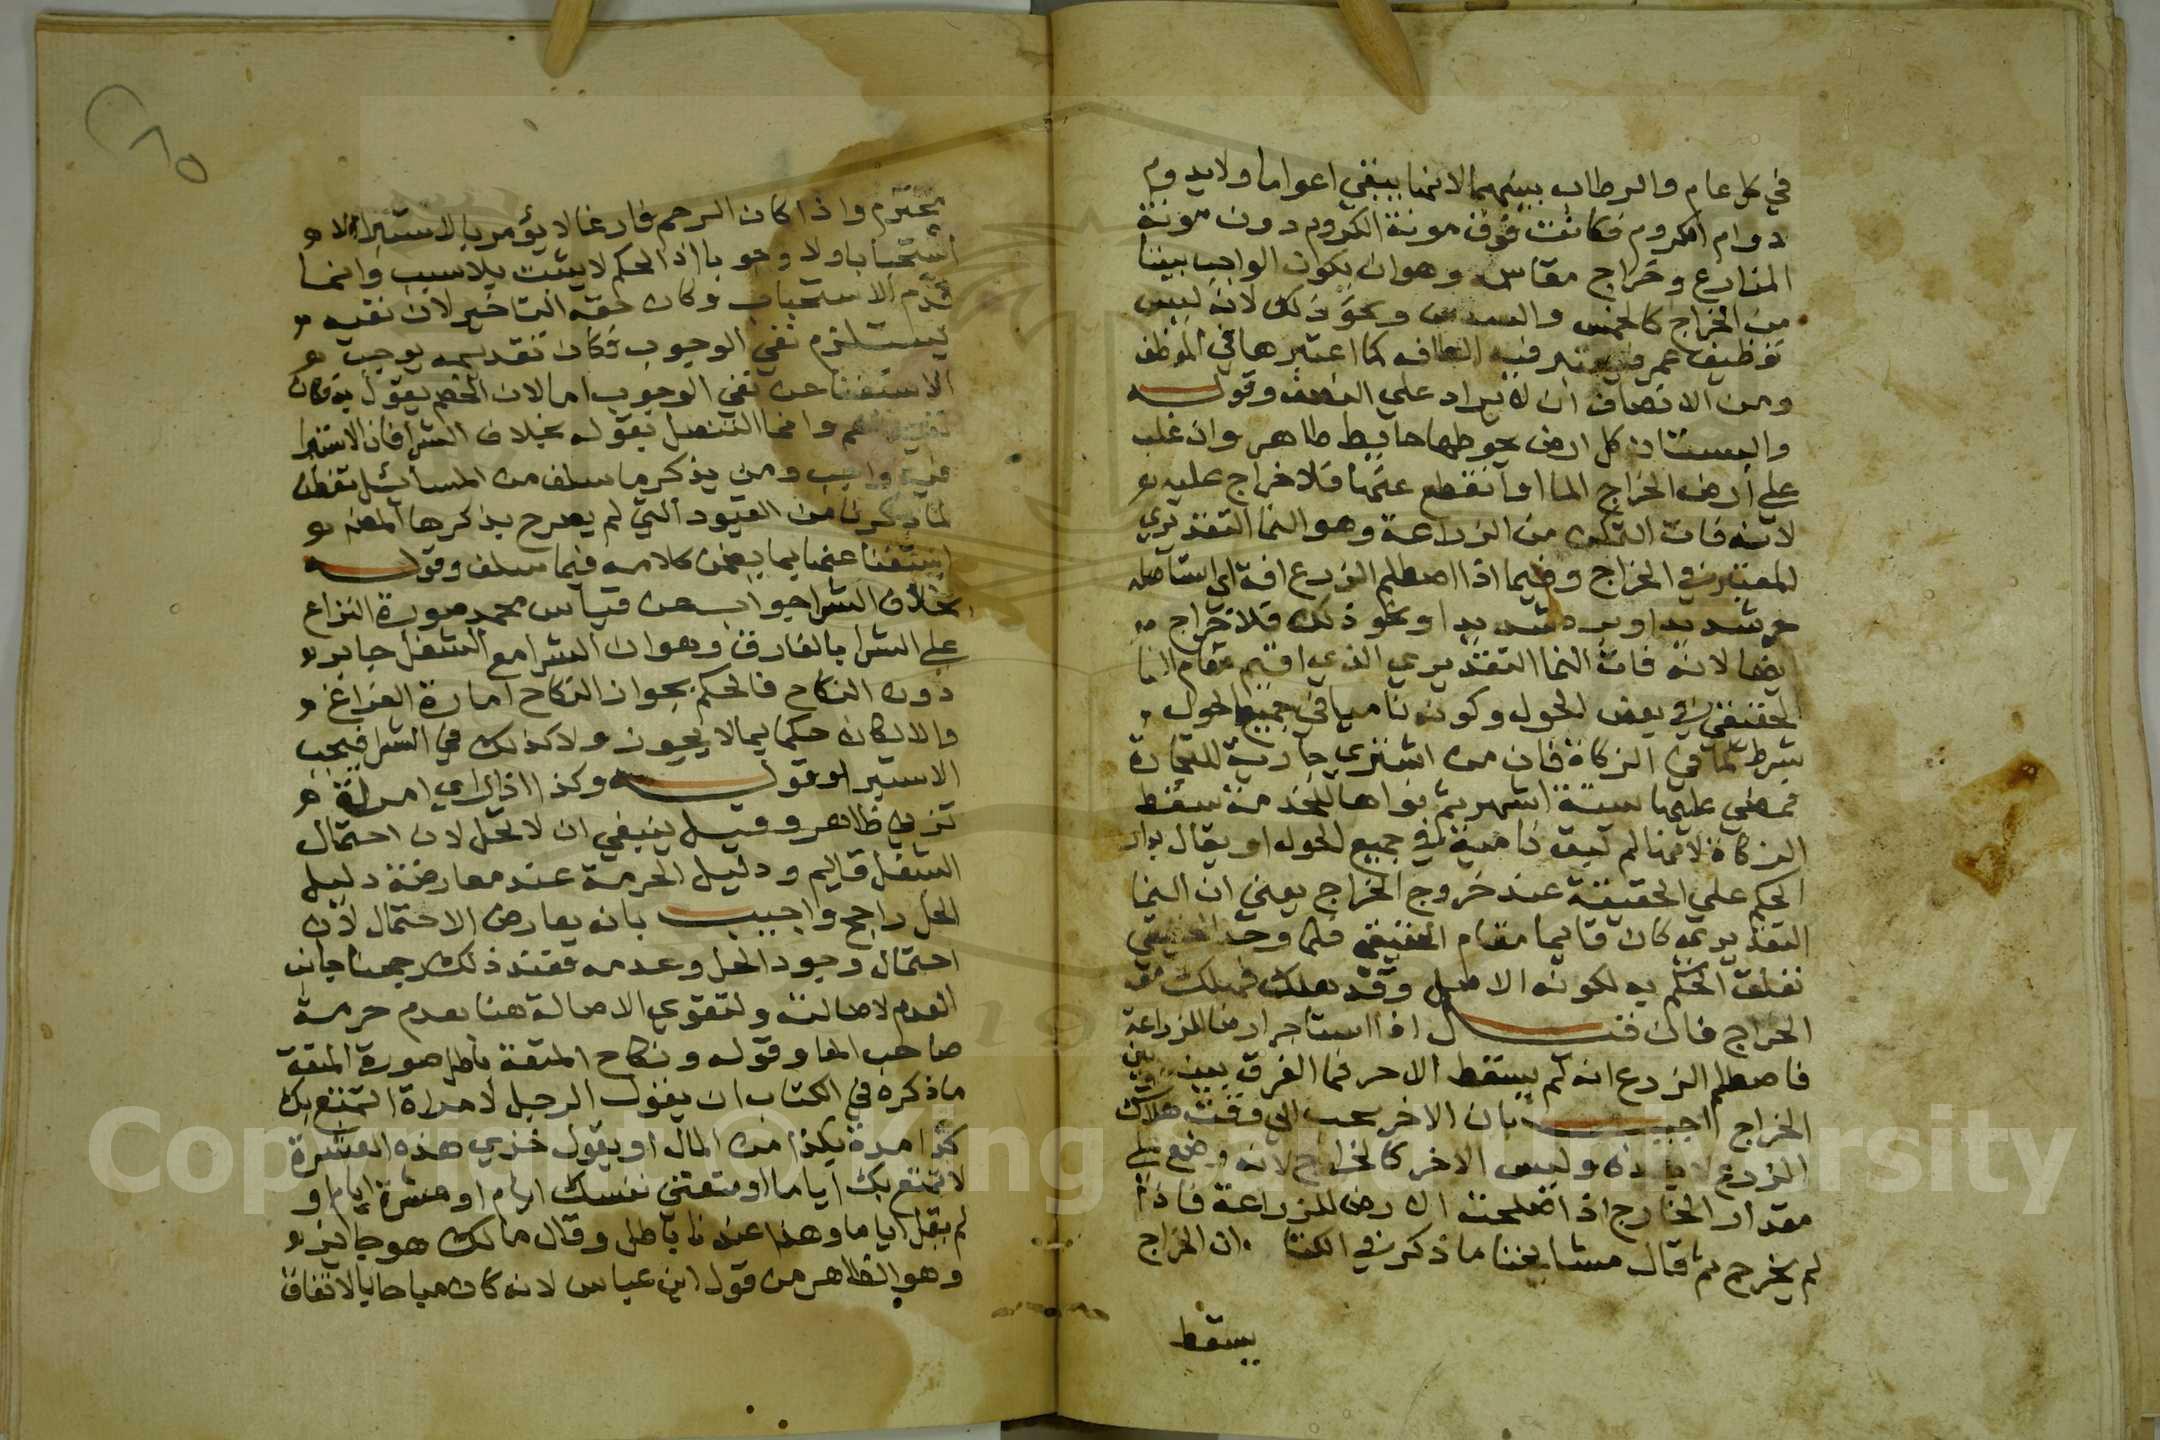 في كل عام والرطاب بينهما لانها يبقي اعواما ولا يدوم
دوام الكروم فكانت فوق مونة الكروم دون مونة
المزارع وخراج مقاسمة وهو ان يكون الواجب بينا
من الخراج كالخمس والسدس ونحو ذلك لانه ليس
توظيف عمر فيعتبر فيه الطاقه كما اعتبرها في الموظف
ومن الانصاف ان لا يزاد علي النصف وقوله
والبستان كل ارض يحوطها حايط ظاهر وان غلب
علي ارض الخراج الما او انقطع عنها فلا خراج عليه
لانه فات التمكن من الزراعة وهو النما التقديري
المعتبر في الخراج وفيما اذا اصطلم الزرع افة اي استاصله
حر شديد او برد شديد او نحو ذلك فلا خراج
ايضا لانه فات النما التقديري الذي اقيم مقام النما
الحقيقي في بعض الحول وكونه ناميا في جميع الحول
شرط كما في الزكاة فان من اشتري جارية للتجارة
فمضي عليها ستة اشهر ثم نواها للخدمة سقط
الزكاة لانها لم تبق نامية في جميع الحول او يقال يدار
الحكم علي الحقيقة عند خروج الخراج يعني ان النما
التقديري كان قايما مقام الحقيقي فلما وجد الحقيقي
تعلق الحكم به لكونه الاصل وقد هلك فيهلك معه
الخراج فان قيل اذا استاجر ارضا للزراعة
فاصطلم الزرع افة لم يسقط الاجر فما الفرق بينه وبين
الخراج اجيب بان الاجر يجب الي وقت هلاك
الزرع لا بعده وليس الاجر كالخراج لانه وضع علي
مقدار الخارج اذا صلحت الارض للزراعة فاذا
لم يخرج ثم قال مشايخنا ما ذكر في الكتا ان الخراج
يسقط
محترم واذا كان الرحم فارغا لا يؤمر بالاستبرا لا
استحبابا ولا وجوبا اذ الحكم لا يثبت بلا سبب وانما
قدم الاستحباب وكان حقه التاخير لان نفيه
يستلزم نفي الوجوب فكان تقديمه يوجب
الاستغنا عن نفي الوجوب اما لان الخصم يقول به فكان
نفيه اهم واما التنصل بقوله بخلاف الشرا فان الاستبرا
فيه واجب ومن يذكر ما سلف من المسائل تفطن
لما ذكرنا من القيود التي لم يصرح بذكرها المصنف
استغنا عنها بما يضمن كلامه فيما سلف وقوله
بخلاف الشرا جواب عن قياس محمد صورة النزاع
علي الشرا بالفارق وهو ان الشرا مع الشغل جايز
دون النكاح فالحكم بجواز النكاح امارة الفراغ
والا لكان حكما بما لا يجوز ولا كذلك في الشرا فيجب
الاستبرا وقوله وكذا اذا راي امراة
تزني ظاهر وقيل ينبغي ان لا تحل لان احتمال
الشغل قايم ودليل الحرمة عند معارضة دليل
الحل راجح واجيب بانه يعارض الاحتمال لان
احتمال وجود الحل وعدمه فعند ذلك رجحنا جانب
العدم لاصالته ولتقوي الاصالة هنا بعدم حرمة
صاحب الما وقوله ونكاح المتعة باطل صورة المتعة
ما ذكره في الكتاب ان يقول الرجل لامراة اتمتع بك
كذا مدة بكذا من المال او يقول خذي هذه العشرة
لاتمتع بك اياما او متعتي نفسك ايام او عشرة ايام او
لم يقل اياما وهذا عندنا باطل وقال مالك هو جايز
وهو الظاهر من قول ابن عباس لانه كان مباحا بالاتفاق